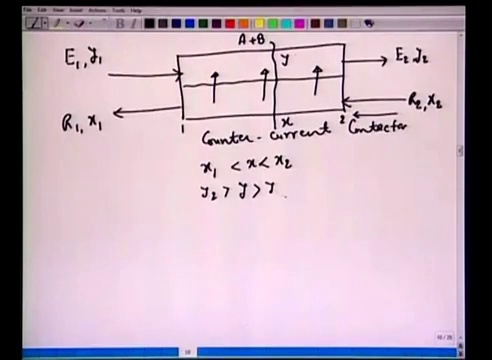 File Edit View Insert Actions Tools Help
A+B
E1, y1
y
E2, y2
R1, x1
R2, x2
1
x
2
Counter-current Contactor
x1 < x < x2
y2 > y > y